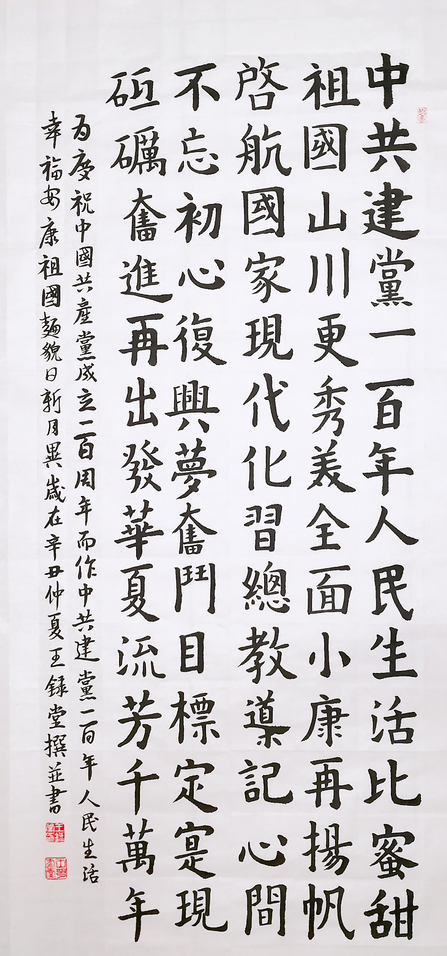 中共建黨一百年人民生活比蜜甜
祖國山川更秀美全面小康再揚帆
啓航國家現代化習總教導記心間
不忘初心復興夢奮鬥目標定寔現
砥礪奮進再出發華夏流芳千萬年
為慶祝中國共產黨成立一百周年而作中共建黨一百年人民生活
幸福安康祖國麵貌日新月異歲在辛丑仲夏王錄堂撰並書